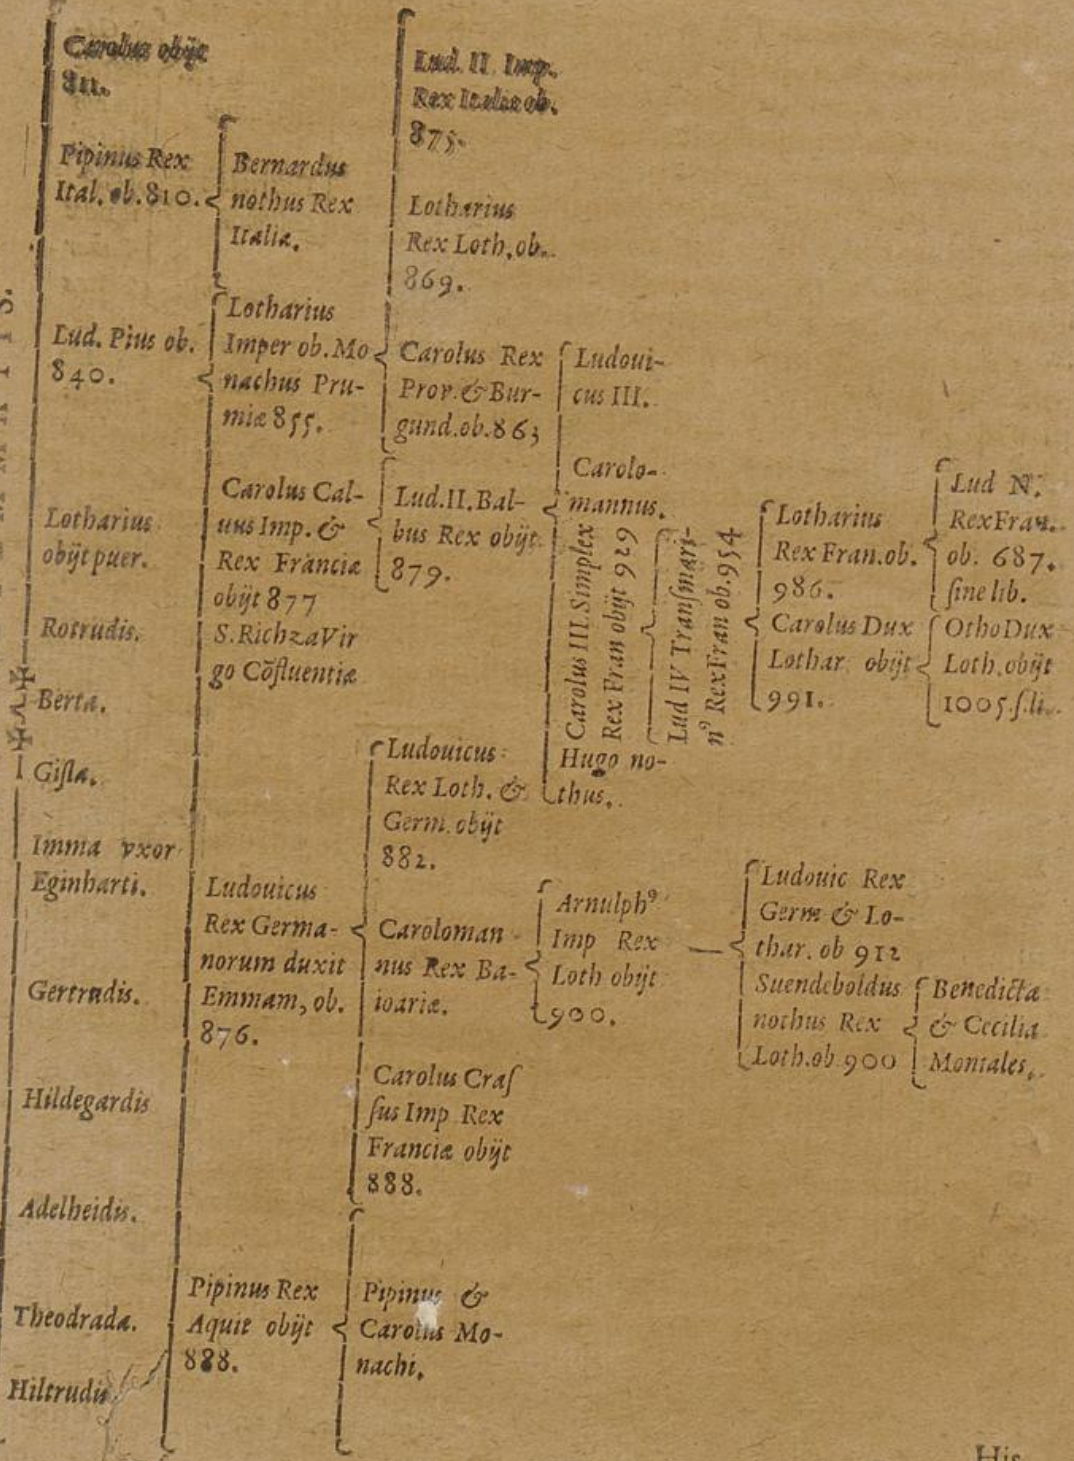 Carolus obijt
811.
Pipinus Rex
Ital. ob. 810.
Lud. Pius ob.
840.
Lotharius
obijt puer.
Rotrudis.
Berta.
Gisla.
Imma vxor
Eginharti.
Gertrudis.
Hildegardis
Adelheidis.
Theodrada.
Hiltrudis
Bernardus
nothus Rex
Italiæ.
Lotharius
Imper ob. Mo
nachus Pru-
miæ 855.
Carolus Cal-
uus Imp. &
Rex Franciæ
obijt 877
S. Richza Vir
go Cõfluentiæ
Ludouicus
Rex Germa-
norum duxit
Emmam, ob.
876.
Pipinus Rex
Aquit obijt
828.
Lud. II. Imp.
Rex Italiæ ob.
875.
Lotharius
Rex Loth. ob.
869.
Carolus Rex
Prov. & Bur-
gund. ob. 863
Lud. II. Bal-
bus Rex obijt
879.
Ludouicus
Rex Loth. &
Germ. obijt
882.
Caroloman
nus Rex Ba-
ioariæ.
Carolus Cras
sus Imp Rex
Franciæ obijt
888.
Pipinus &
Carolus Mo-
nachi.
Ludoui-
cus III.
Carolo-
mannus.
Carolus III. Simplex
Rex Fran obijt 929
Hugo no-
thus.
Lud IV Transmari-
nꝰ Rex Fran ob. 954
Arnulphꝰ
Imp Rex
Loth obijt
900.
Lotharius
Rex Fran. ob.
986.
Carolus Dux
Lothar. obijt
991.
Lud N.
Rex Fran.
ob. 687.
sine lib.
Otho Dux
Loth. obijt
1005. s. li.
Ludouic Rex
Germ & Lo-
thar. ob 912
Suendeboldus
nothus Rex
Loth. ob 900
Benedicta
& Cecilia
Moniales.
His